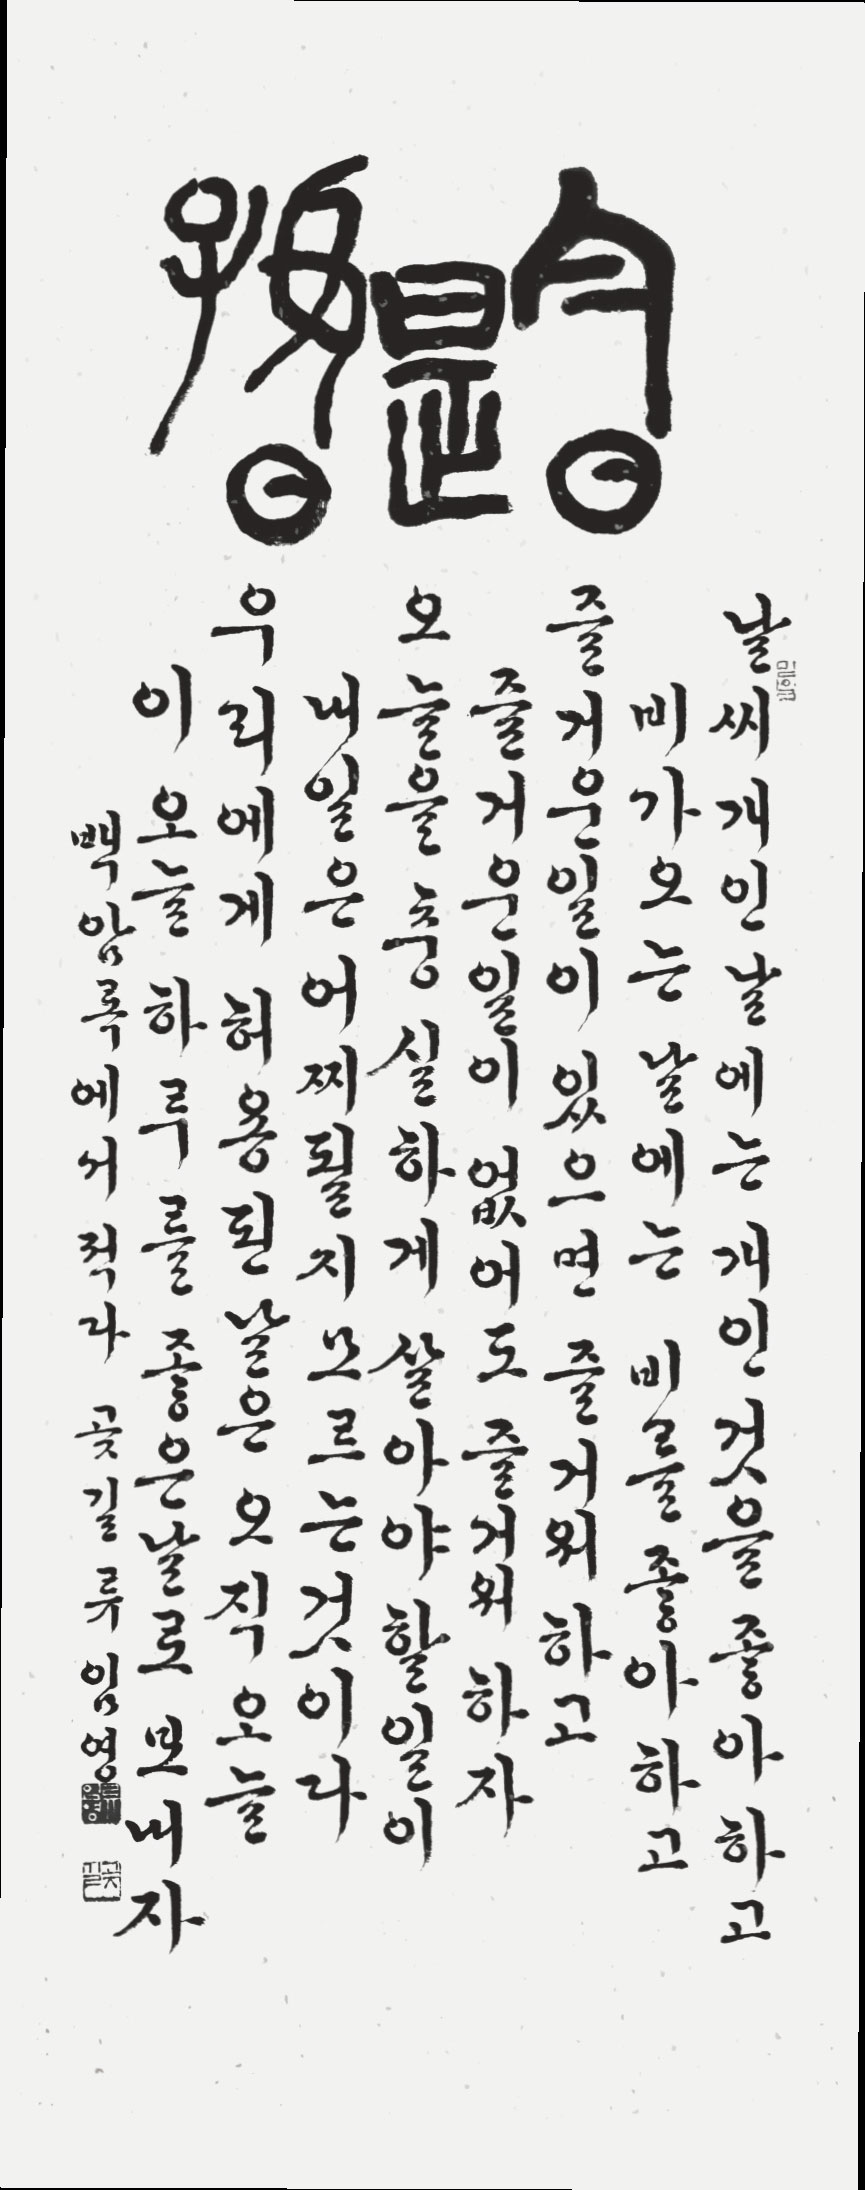 今日是好日
날씨 개인 날에는 개인 것을 좋아하고
비가 오는 날에는 비를 좋아하고
즐거운 일이 있으면 즐거워하고
즐거운 일이 없어도 즐거워하자
오늘을 충실하게 살아야 할 일이
내일은 어찌될지 모르는 것이다
우리에게 허용된 날은 오직 오늘
이 오늘 하루를 좋은 날로 보내자
백암록에서 적다 꽃길 류임영